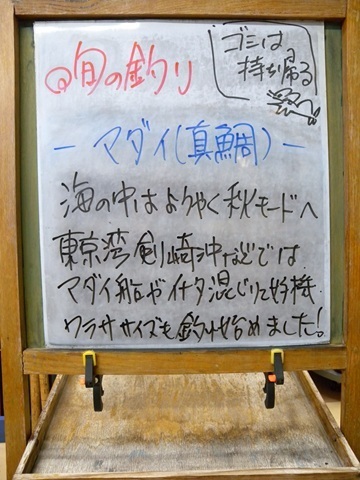 旬の釣り
ゴミは
持ち帰る
- マダイ(真鯛) -
海の中はようやく秋モードへ
東京湾剣崎沖などでは
マダイ船やイナダ混じりで好機.
ワラササイズも釣れ始めました!